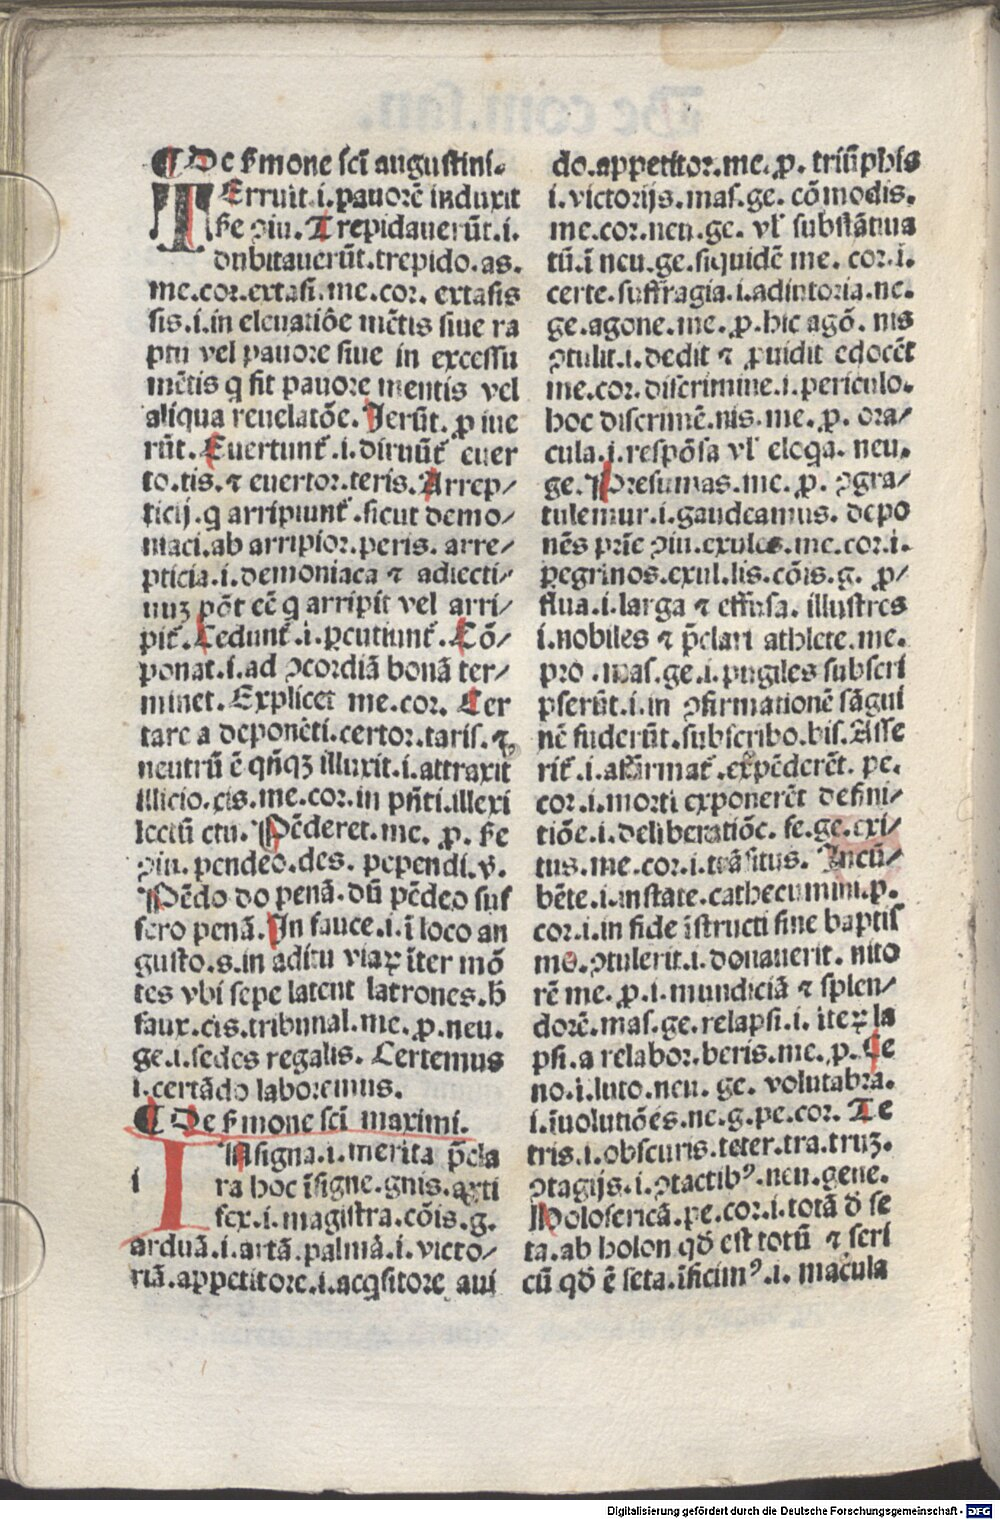 ¶ De ẜmone sci augustini.
TErruit.i.pauorē induxit
ẜe ꝯiu. Trepidauerūt.i.
dubitauerūt.trepido.as.
me.cor.extasi.me.cor. extasis
sis.i.in eleuatiōe mētis siue ra
ptu vel pauore siue in excessu
mētis q fit pauore mentis vel
aliqua reuelatōe. Jerūt. ꝓ iue
rūt. Euertunt᷑.i.diruūt᷑ euer
to.tis.⁊ euertor.teris.Arrep⸗
ticij.q arripiunt᷑.sicut demo⸗
niaci.ab arripior.peris. arre⸗
pticia.i.demoniaca ⁊ adiecti⸗
uuꝫ pōt eē q arripit vel arri⸗
pit᷑.Cedunt᷑.i.ꝑcutiunt᷑.Cō⸗
ponat.i.ad ꝯcordiā bonā ter⸗
minet. Explicet me.cor. Cer
tare a deponēti.certor.taris.⁊
neutrū ē qn̄qꝫ illuxit.i.attraxit
illicio.cis.me.cor.in pn̄ti.illexi
lectū ctu. Pēderet.me. ꝓ. ẜe
ꝯiu. pendeo.des. pependi.v.
Pēdo do penā.dū pēdeo suf
fero penā.In fauce.i.ī loco an
gusto.s.in aditu viaꝝ īter mō
tes vbi sepe latent latrones.h̄
faux.cis.tribunal.me.ꝓ.neu.
ge.i.sedes regalis. Certemus
i.certādo laboremus.
¶ De ẜmone sci maximi.
INsigna.i.merita p̄cla
i
ra hoc īsigne.gnis.arti
fex.i.magistra.cōis.g.
arduā.i.artā.palmā.i.victo⸗
riā.appetitore.i.acq̄sitore aui
do.appetitor.me.ꝓ. triūphis
i.victorijs.mas.ge.cōmodis.
me.cor.neu.ge. vl' substātiua
tū.ī neu.ge.siquidē me. cor.i.
certe.suffragia.i.adiutoria.ne.
ge.agone.me.ꝓ.hic agō. nis
ꝯtulit.i.dedit ⁊ ꝓuidit edocēt
me.cor.discrimine.i.periculo.
hoc discrimē.nis.me.ꝓ. ora⸗
cula.i.respōsa vl' eloqa. neu.
ge. Presumas.me.ꝓ. ꝯgra⸗
tulemur.i.gaudeamus. depo
nēs prīe ꝯiu.exules.me.cor.i.
ꝑegrinos.exul.lis.cōis.g. ꝓ⸗
flua.i.larga ⁊ effusa. illustres
i.nobiles ⁊ p̄clari athlete.me.
pro.mas.ge.i.pugiles subscri
pserūt.i.in ꝯfirmationē sāgui
nē fuderūt.subscribo.bis.Asse
rit᷑.i.affirmat᷑.expēderēt. pe.
cor.i.morti exponerēt defini⸗
tiōe.i.deliberatiōe. fe.ge.exi⸗
tus.me.cor.i.trāsitus. Incū⸗
bēte.i.instate.cathecumini.ꝓ.
cor.i.in fide īstructi sine baptis
mo.ꝯtulerit.i.donauerit. nito
rē me.ꝓ.i.mundiciā ⁊ splen⸗
dorē.mas.ge.relapsi.i.iteꝝ la
psi.a relabor.beris.me.ꝓ.Ce
no.i.luto.neu. ge. volutabra.
i.īuolutiōes.ne.g.pe.cor. Te
tris.i.obscuris.teter.tra.truꝫ.
ꝯtagijs.i.ꝯtactibꝰ.neu.gene.
Holosericā.pe.cor.i.totā d̄ se
ta.ab holon qd̄ est totū ⁊ seri
cū qd̄ ē seta.īficimꝰ.i. macula
Digitalisierung gefördert durch die Deutsche Forschungsgemeinschaft - DFG